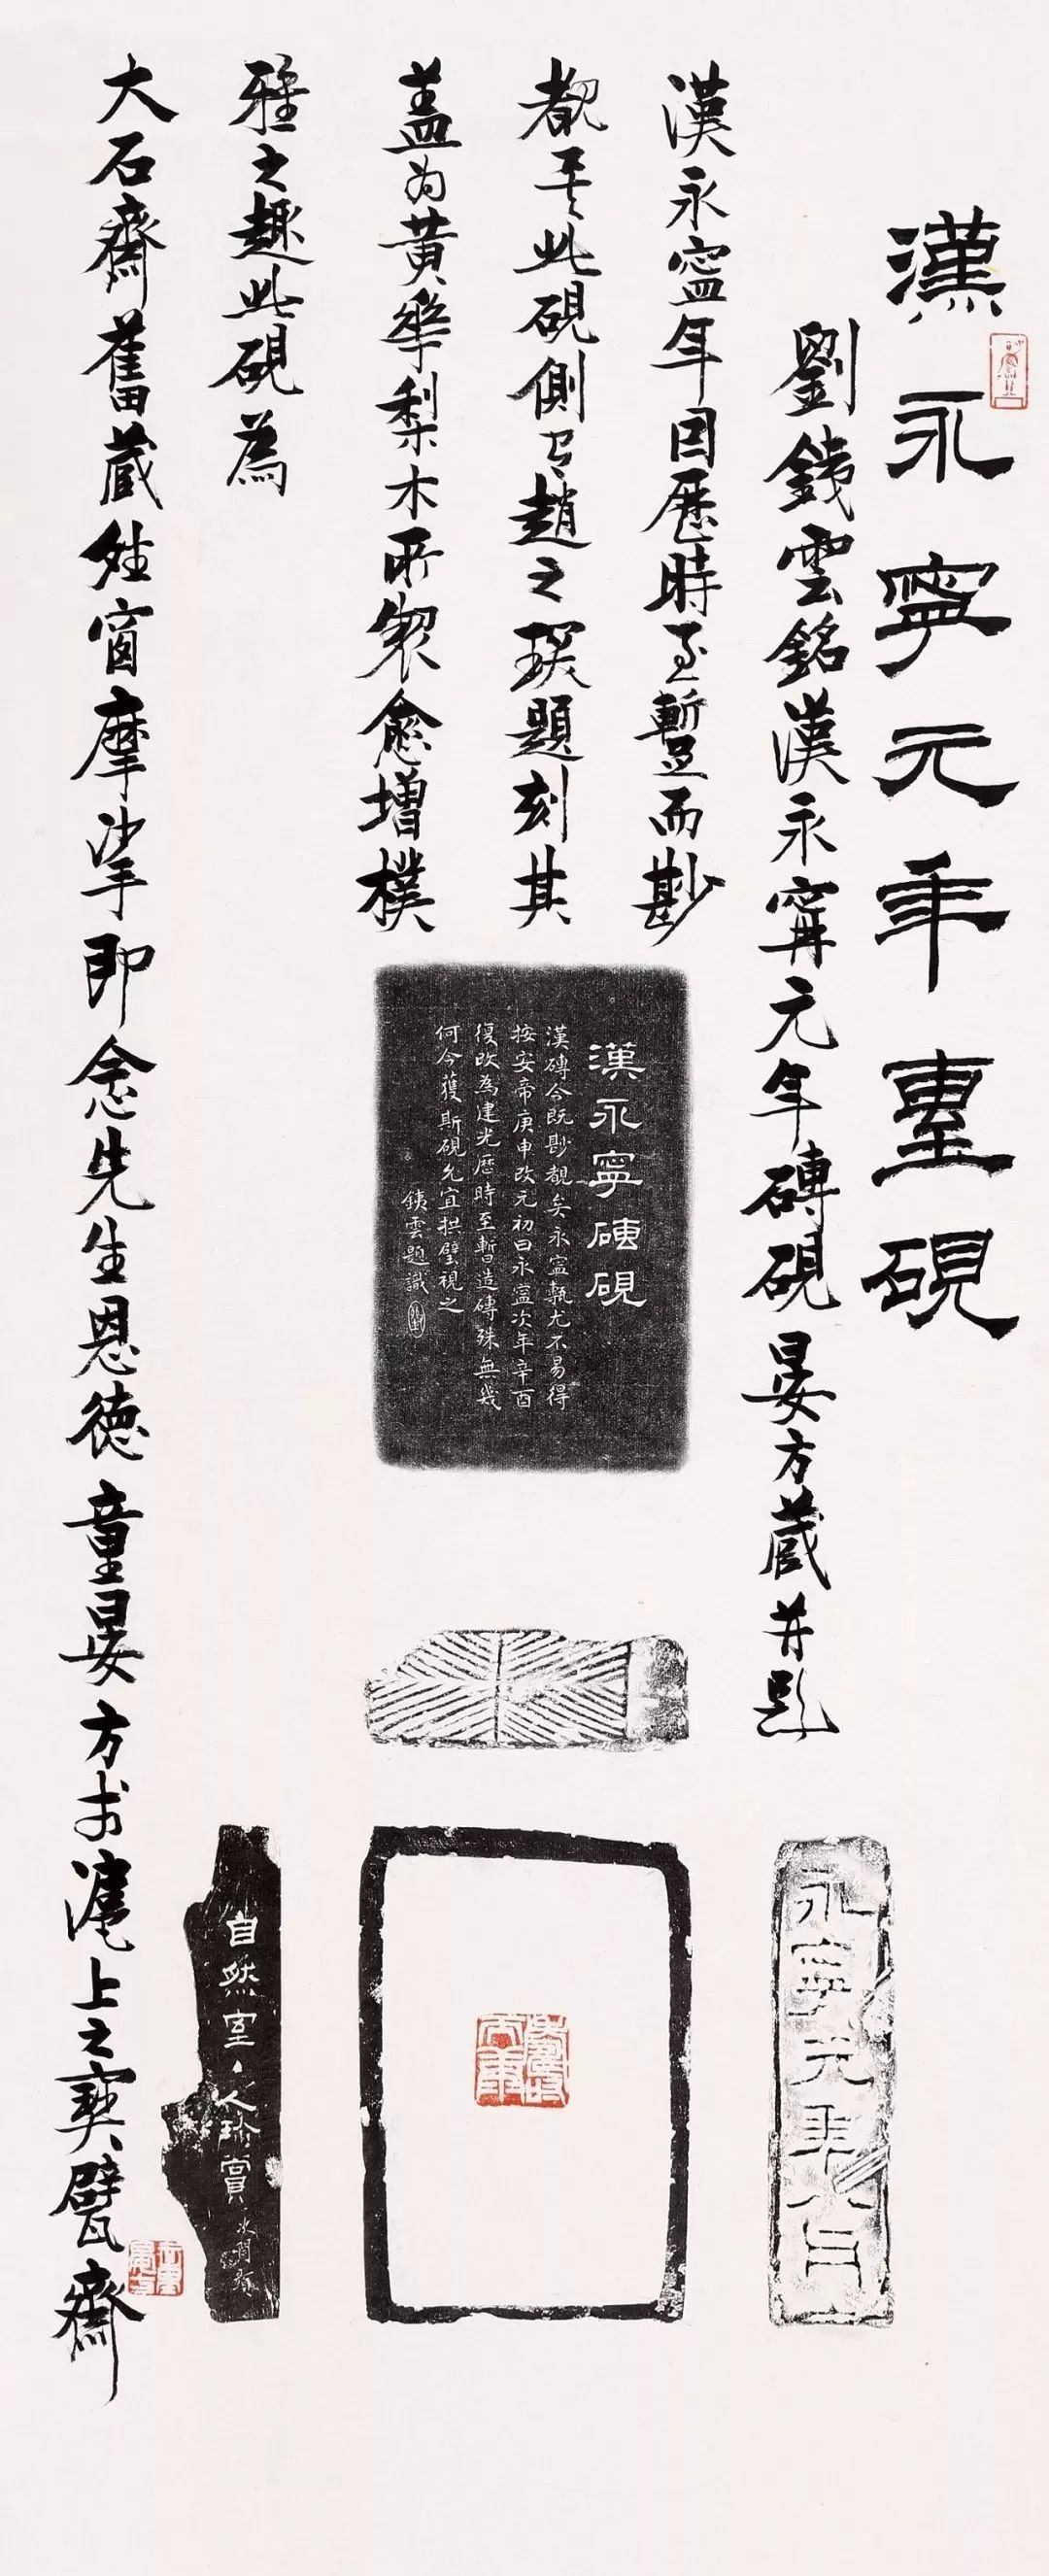 漢永寧元年䡰硯
劉銕雲銘漢永寗元年磚硯晏方藏并題
漢永寍年因歷時至暫而尠
覩至此硯側有趙之琛題刻其
盖为黃華梨木所製愈增樸
雅之趣此硯為
大石齋舊藏姓窗摩挲即念先生恩德童晏方求滬上之寶甓齋
漢永寧磚硯
漢磚今既尠覩矣永寍甎尤不易得
按安帝庚申改元初曰永寍次年辛酉
復改為建光歷時至暫造磚殊無幾
何今獲斯硯允宜拱璧視之
銕雲題識
永寧元年六月
自然室人珍賞